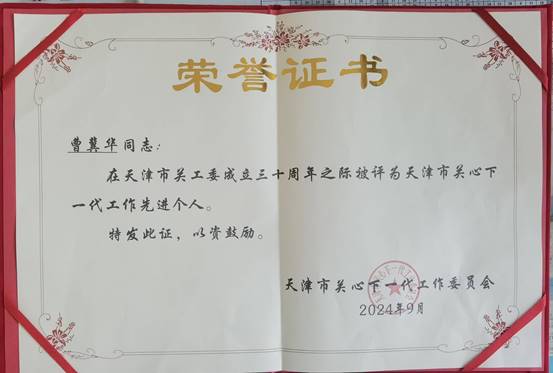 荣誉证书
曹冀华同志：
在天津市关工委成立三十周年之际被评为天津市关心下
一代工作先进个人。
特发此证，以资鼓励。
天津市关心下一代工作委员会
2024年9月